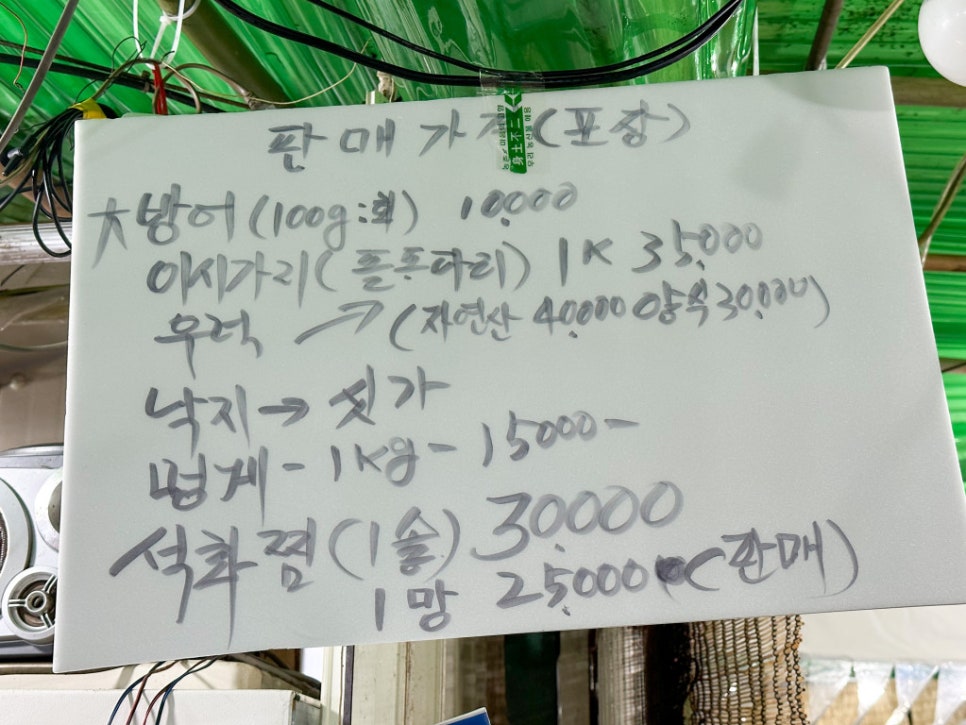 판매가격(포장)
身土不二
大방어(100g:회) 10,000
이시가리(돌도다리) 1K 35,000
우럭 → (자연산 40,000 양식 30,000)
낙지→싯가
멍게-1Kg-15000-
석화찜(1솥) 30,000
1망 25,000(판매)